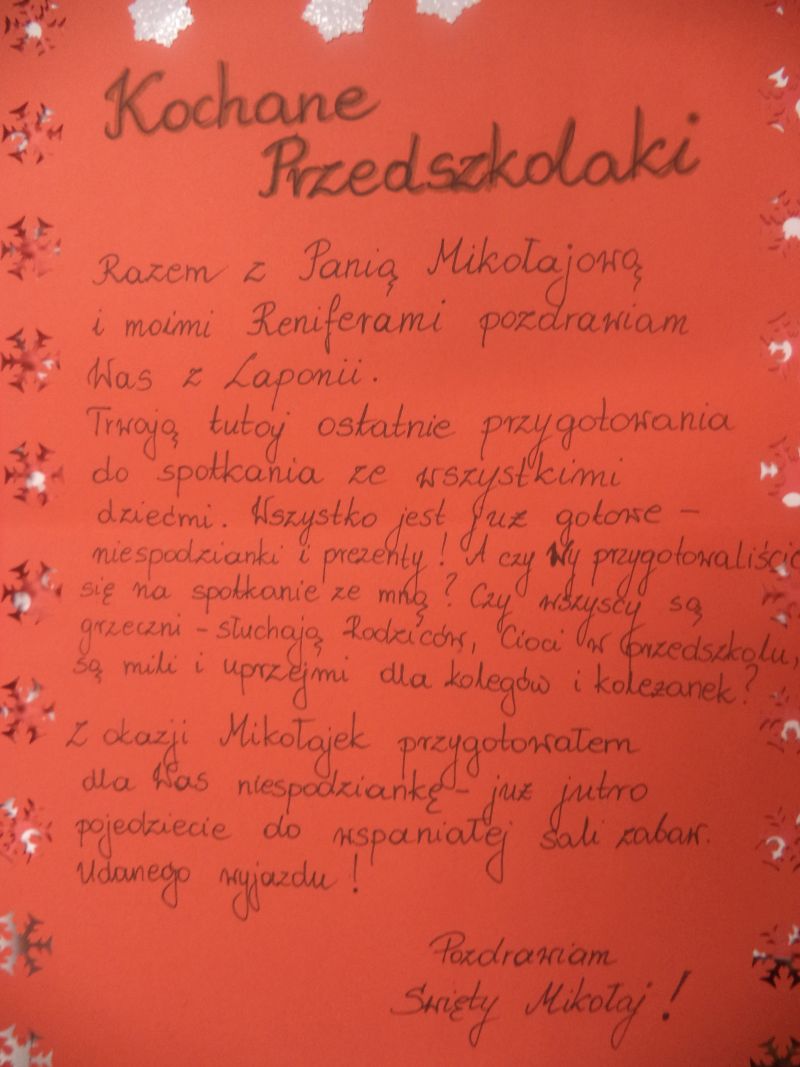 Kochane
Przedszkolaki
Razem z Panią Mikołajową
i moimi Reniferami pozdrawiam
Was z Laponii.
Trwają tutaj ostatnie przygotowania
do spotkania ze wszystkimi
dziećmi. Wszystko jest już gotowe -
niespodzianki i prezenty! A czy Wy przygotowaliście
się na spotkanie ze mną? Czy wszyscy są
grzeczni - słuchają Rodziców, Cioci w przedszkolu,
są mili i uprzejmi dla kolegów i koleżanek?
Z okazji Mikołajek przygotowałem
dla Was niespodziankę - już jutro
pojedziecie do wspaniałej sali zabaw.
Udanego wyjazdu!
Pozdrawiam
Święty Mikołaj!